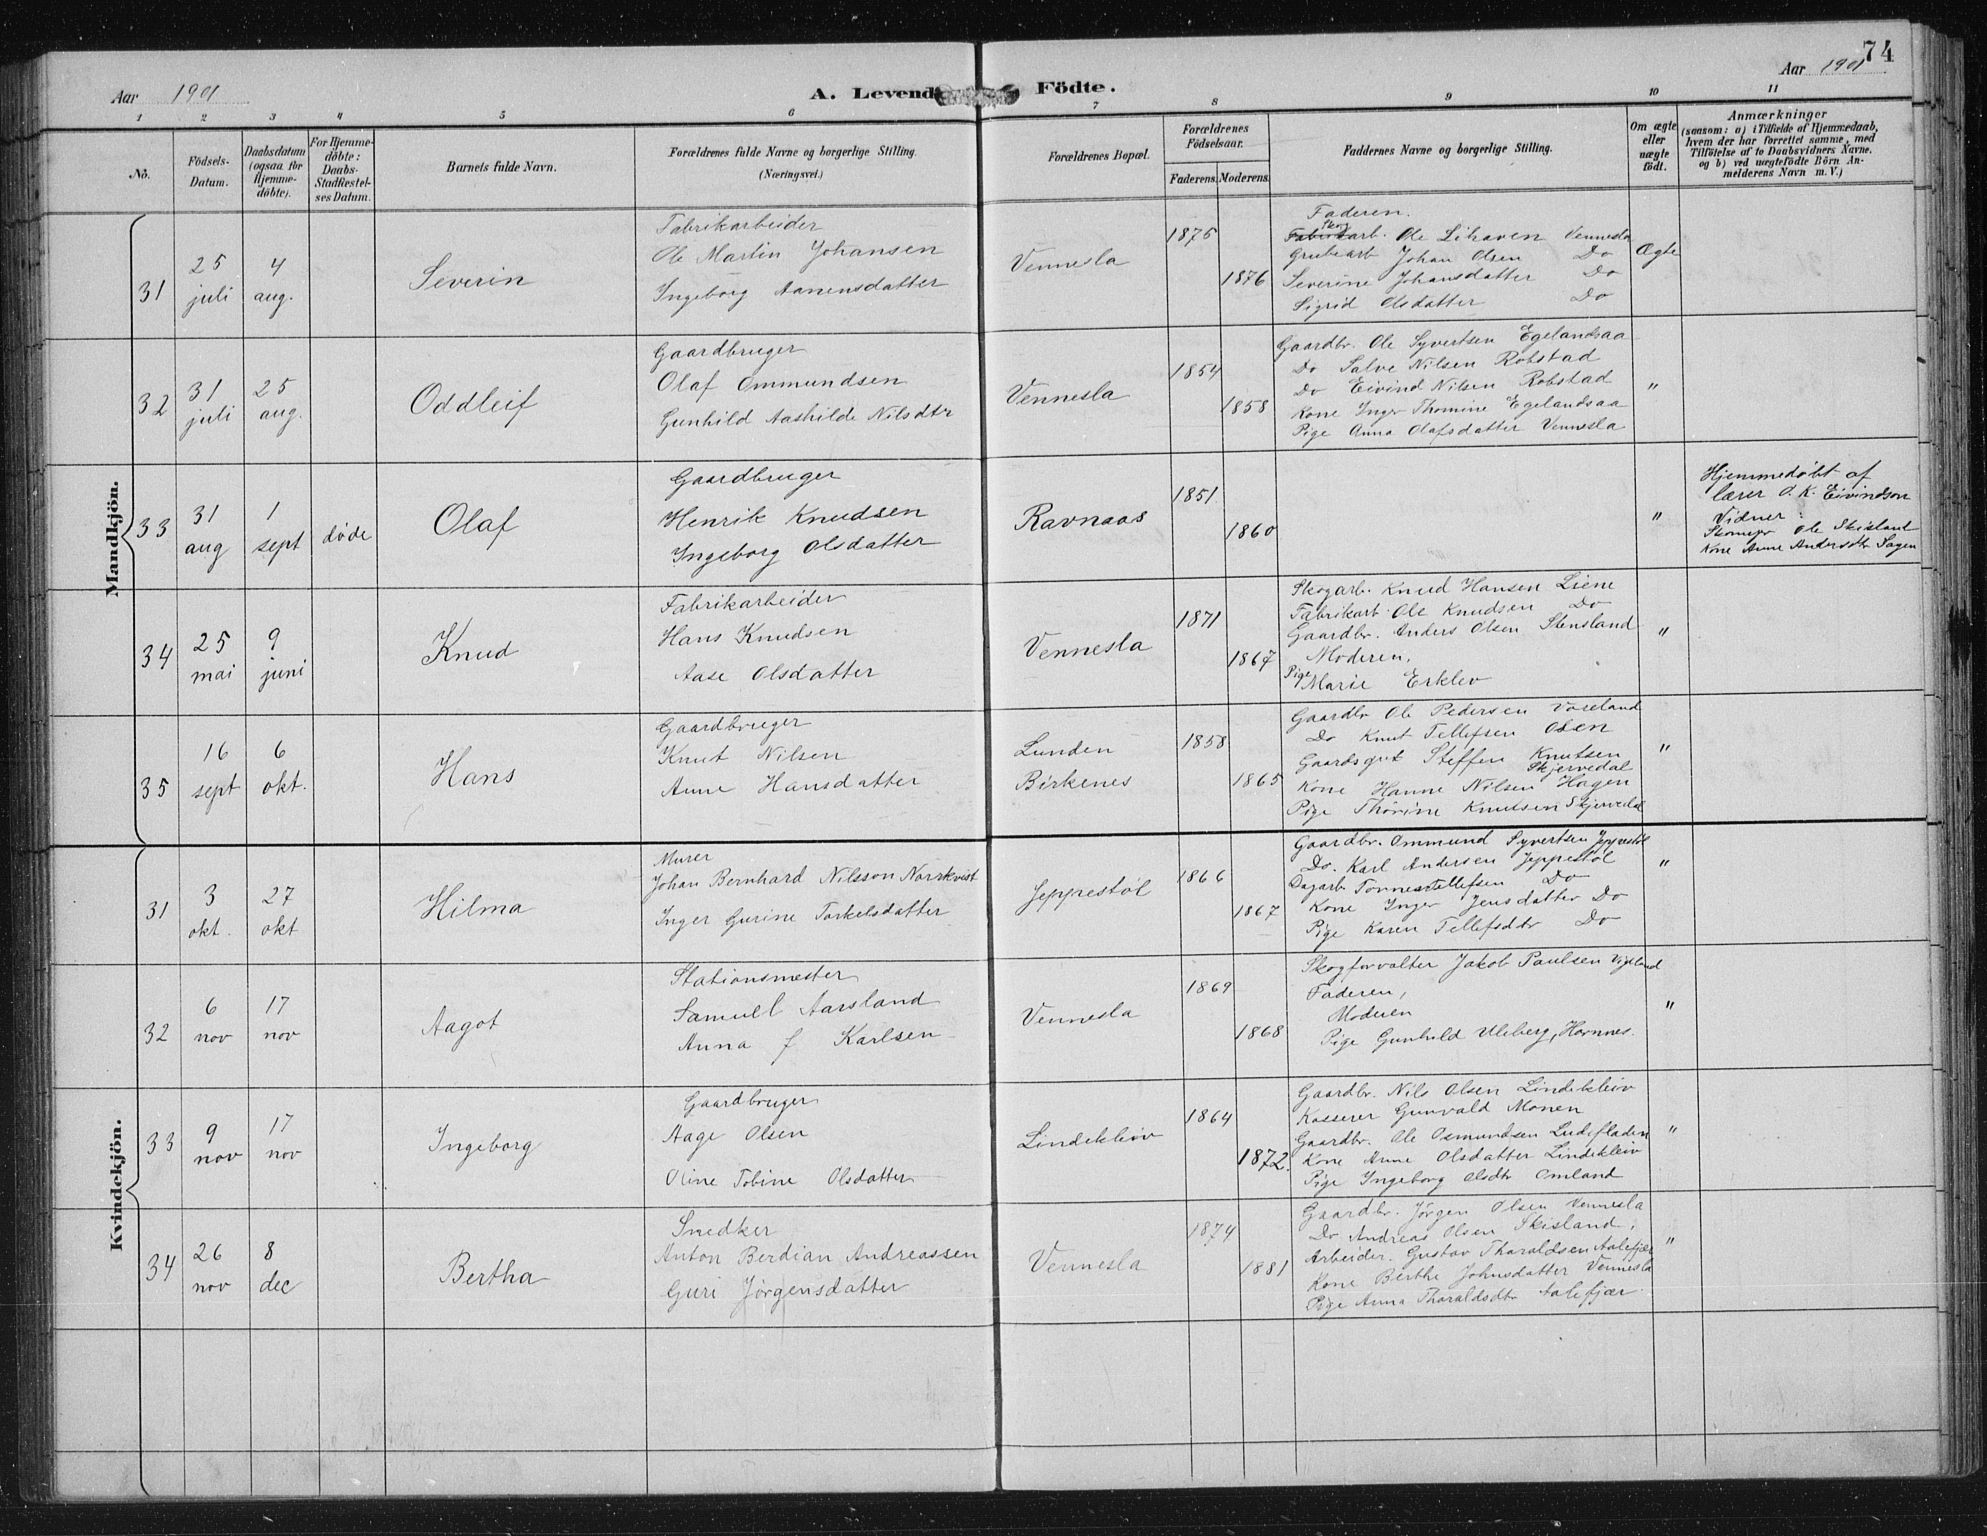 74
Aar 1901
A. Levende Födte.
Aar 1901
1 2 3 4 5 6 7 8 9 10 11
No.
Födsels-Datum.
Daabsdatum (ogsaa for Hjemme-döbte).
For Hjemme-döbte: Daabs-Stadfestel-ses Datum.
Barnets fulde Navn.
Forældrenes fulde Navne og borgerlige Stilling.
(Næringsvei.)
Forældrenes Bopæl.
Forældrenes Födselsaar.
Faderens. Moderens.
Faddernes Navne og borgerlige Stilling.
Om ægte eller uægte födt.
Anmærkninger
(saasom: a) i Tilfælde af Hjemmedaab,
hvem der har forrettet samme, med
Tilföielse af to Daabsvidners Navne,
og b) ved uægtefödte Börn An-
melderens Navn m. V.)
Mandkjön.
31
25 juli
4 aug.
Severin
Fabrikarbeider
Ole Martin Johansen
Ingeborg Aanensdatter
Vennesla
1875
1876
Faderen.
Skog
Fabrikarb. Ole Lihaven Vennesla
Grubearb Johan Olsen Do
Severine Johansdatter Do
Sigrid Olsdatter Do
Ægte
32
31 juli
25 aug.
Oddleif
Gaardbruger
Olaf Ommundsen
Gunhild Aashilde Nilsdtr
Vennesla
1854
1858
Gaardbr. Ole Syvertsen Egelandsaa
Do Salve Nilsen Robstad
Do Eivind Nilsen Robstad
Kone Inger Thomine Egelandsaa
Pige Anna Olafsdatter Vennesla
"
33
31 aug
1 sept
döde
Olaf
Gaardbruger
Henrik Knudsen
Ingeborg Olsdatter
Ravnaas
1851
1860
"
Hjemmedøbt af
lærer O. K. Eivindson
Vidner:
Ole Skisland
Kone Anne Andersdtr Sagen
34
25 mai
9 juni
Knud
Fabrikarbeider
Hans Knudsen
Aase Olsdatter
Vennesla
1871
1867
Skogarb. Knud Hansen Liene
Fabrikarb. Ole Knudsen Do
Gaardbr. Anders Olsen Stensland
Moderen.
Pige Marie Erklev
"
35
16 sept
6 okt.
Hans
Gaardbruger
Knut Nilsen
Anne Hansdatter
Lunden
Birkenes
1858
1865
Gaardbr Ole Pedersen Voreland
Do Knut Tellefsen Osen
Gaardsgut Steffen Knutsen
Skjervedal
Kone Hanne Nilsen Hagen
Pige Thorine Knutsen Skjervedal
"
Kvindekjön.
31
3 okt.
27 okt
Hilma
Murer
Johan Bernhard Nilsson Norrkvist
Inger Gurine Torkelsdatter
Jeppestøl
1866
1867
Gaardbr. Ommund Syvertsen Jeppestøl
Do. Karl Andersen Jeppestøl
Dagarb Tønnes Tellefsen Do
Kone Inger Jensdatter Do
Pige Karen Tellefsdtr Do
"
32
6 nov
17 nov
Aagot
Stationsmester
Samuel Aarsland
Anna f Karlsen
Vennesla
1869
1868
Skogforvalter Jakob Paulsen Vigeland
Faderen,
Moderen
Pige Gunhild Uleberg, Hornnes.
"
33
9 nov
17 nov
Ingeborg
Gaardbruger
Aage Olsen
Oline Tobine Olsdatter
Lindekleiv
1864
1872.
Gaardbr. Nils Olsen Lindekleiv
Kasserer Gunvald Monen
Gaardbr. Ole Osmundsen Ludefladen
Kone Anne Olsdatter Lindekleiv
Pige Ingeborg Olsdtr Omland
"
34
26 nov
8 dec
Bertha
Snedker
Anton Berdian Andreassen
Guri Jørgensdatter
Vennesla
1874
1881
Gaardbr. Jørgen Olsen Vennesla
Do Andreas Olsen Skisland,
Arbeider. Gustav Tharaldsen Aalefjær
Kone Berthe Johnsdatter Vennesla
Pige Anna Tharaldsdtr Aalefjær
"